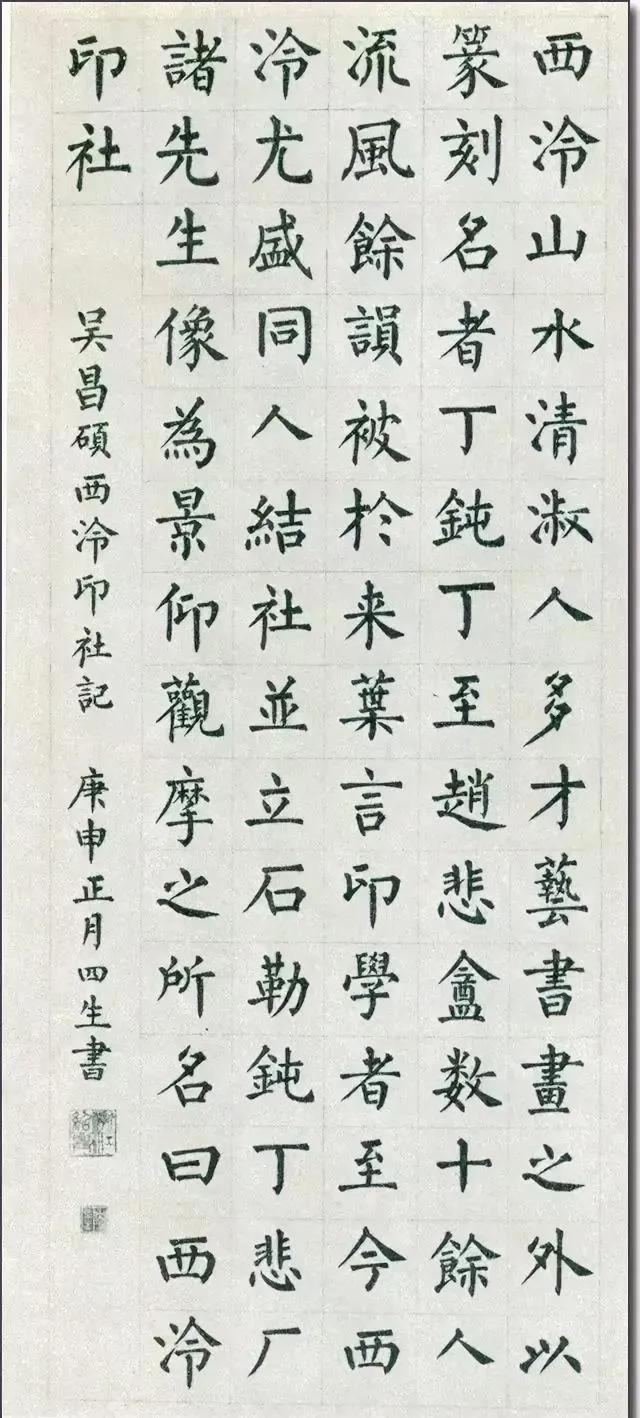 西泠山水清淑人多才藝書畫之外以
篆刻名者丁鈍丁至趙悲盦数十餘人
流風餘韻被於来葉言印學者至今西
泠尤盛同人結社並立石勒鈍丁悲厂
諸先生像為景仰觀摩之所名曰西泠
印社
吴昌碩西泠印社記 庚申正月四生書